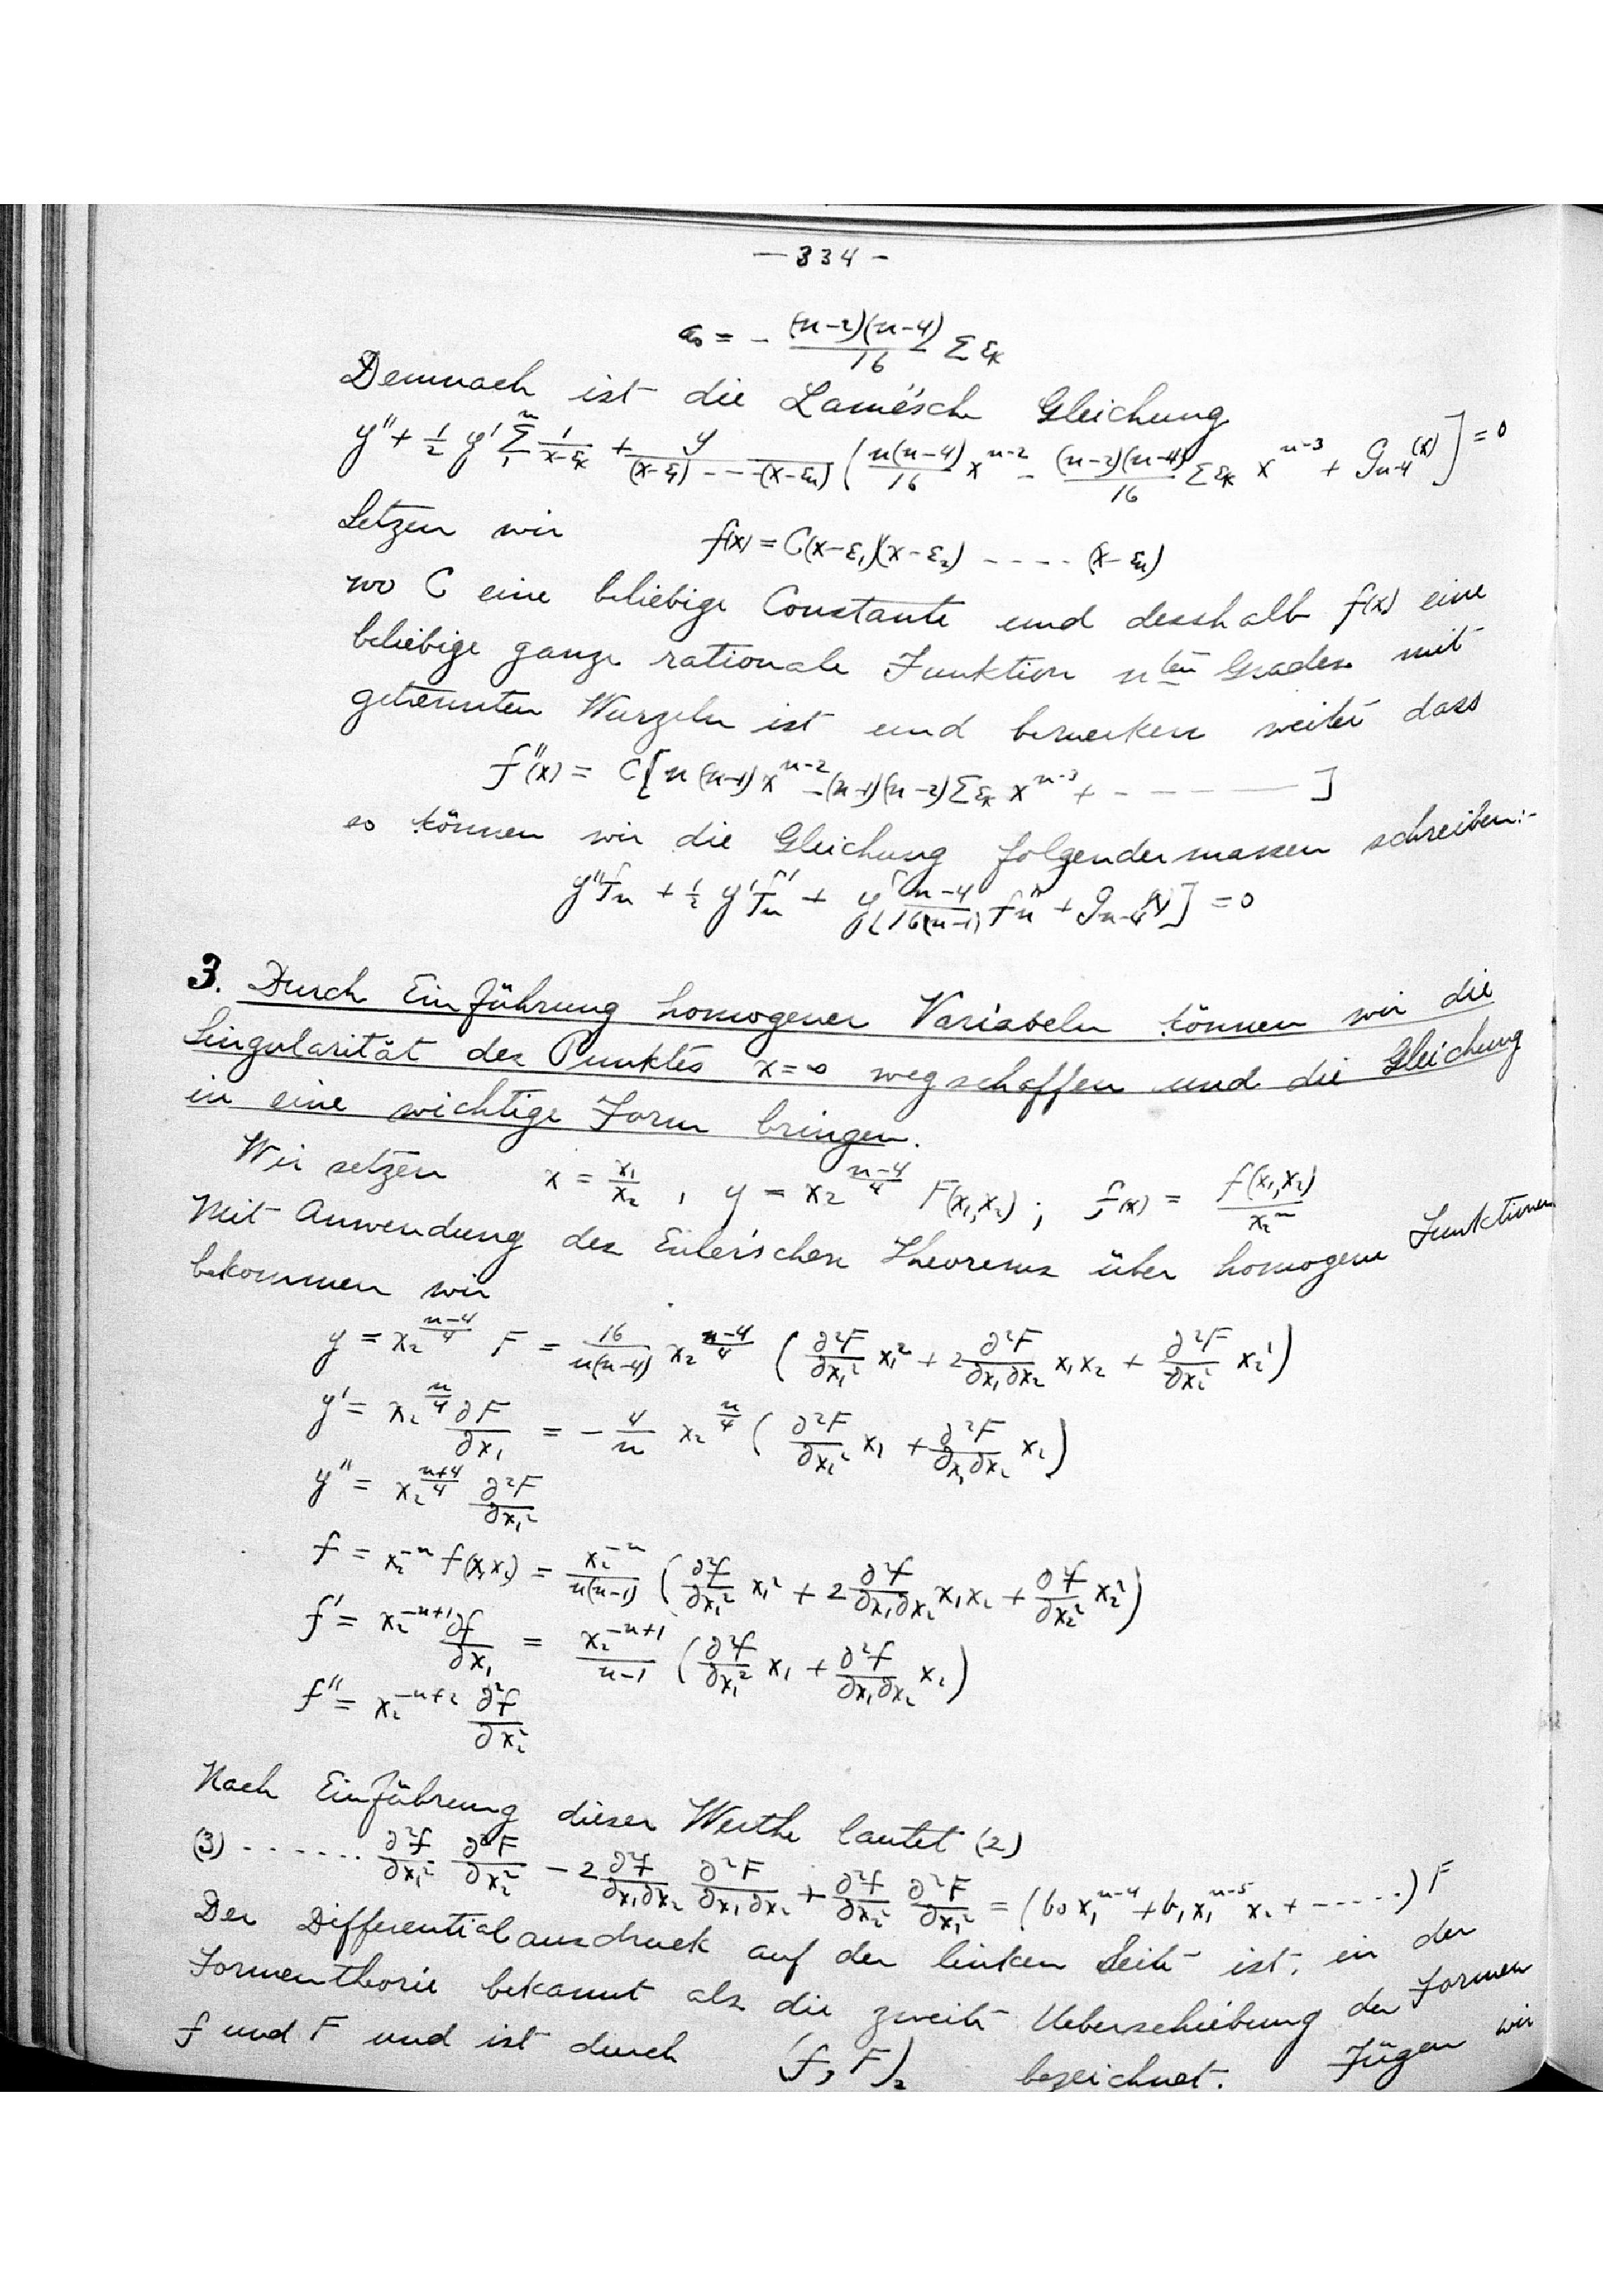 — 334 -
a₀ = - (n-2)(n-4)/16 Σ εₖ
Demnach ist die Lamé'sch Gleichung
y'' + 1/2 y' Σ₁ⁿ 1/(x-εₖ) + y/((x-ε₁) - - - (x-εₙ)) ( n(n-4)/16 xⁿ⁻² - (n-2)(n-4)/16 Σ εₖ xⁿ⁻³ + gₙ₋₄(x) ] = 0
Setzen wir f(x) = C(x-ε₁)(x-ε₂) - - - - (x-εₙ)
wo C eine beliebige Constante und desshalb f(x) eine
beliebige ganze rationale Funktion nten Grades mit
getrennten Wurzeln ist und bemerken weiter dass
f''(x) = C[n(n-1)xⁿ⁻² - (n-1)(n-2)Σεₖ xⁿ⁻³ + - - - - ]
so können wir die Gleichung folgendermassen schreiben:-
y''fₙ + 1/2 y'fₙ' + y[ (n-4)/(16(n-1)) fₙ'' + gₙ₋₄(x)] = 0
3. Durch Einführung homogener Variabeln können wir die
Singularität des Punktes x=∞ wegschaffen und die Gleichung
in eine wichtige Form bringen.
Wir setzen x = x₁/x₂ , y = x₂^((n-4)/4) F(x₁,x₂) ; f(x) = f(x₁,x₂)/x₂ⁿ
Mit Anwendung des Euler'schen Theorems über homogene Funktionen
bekommen wir
y = x₂^((n-4)/4) F = 16/(n(n-4)) x₂^((n-4)/4) ( ∂²F/∂x₁² x₁² + 2 ∂²F/∂x₁∂x₂ x₁x₂ + ∂²F/∂x₂² x₂² )
y' = x₂^(n/4) ∂F/∂x₁ = - 4/n x₂^(n/4) ( ∂²F/∂x₁² x₁ + ∂²F/∂x₁∂x₂ x₂ )
y'' = x₂^((n+4)/4) ∂²F/∂x₁²
f = x₂⁻ⁿ f(x₁x₂) = x₂⁻ⁿ/(n(n-1)) ( ∂²f/∂x₁² x₁² + 2 ∂²f/∂x₁∂x₂ x₁x₂ + ∂²f/∂x₂² x₂² )
f' = x₂⁻ⁿ⁺¹ ∂f/∂x₁ = x₂⁻ⁿ⁺¹/(n-1) ( ∂²f/∂x₁² x₁ + ∂²f/∂x₁∂x₂ x₂ )
f'' = x₂⁻ⁿ⁺² ∂²f/∂x₂²
Nach Einführung dieser Werthe lautet (2)
(3) . . . . . . . ∂²f/∂x₁² ∂²F/∂x₂² - 2 ∂²f/∂x₁∂x₂ ∂²F/∂x₁∂x₂ + ∂²f/∂x₂² ∂²F/∂x₁² = (b₀x₁ⁿ⁻⁴ + b₁x₁ⁿ⁻⁵x₂ + - - - - -) F
Der Differentialausdruck auf der linken Seite ist in der
Formentheorie bekannt als die zweite Ueberschiebung der Formen
f und F und ist durch (f, F)₂ bezeichnet. Fügen wir